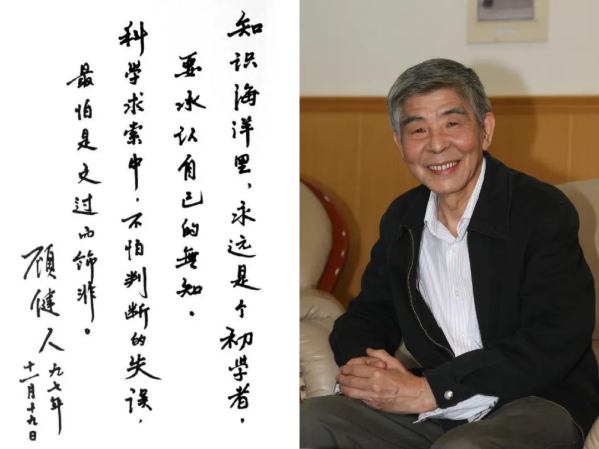 知识海洋里，永远是个初学者，
要承认自己的無知。
科学求索中，不怕判断的失误，
最怕是文过而饰非。
顾健人
九七年
十一月十九日